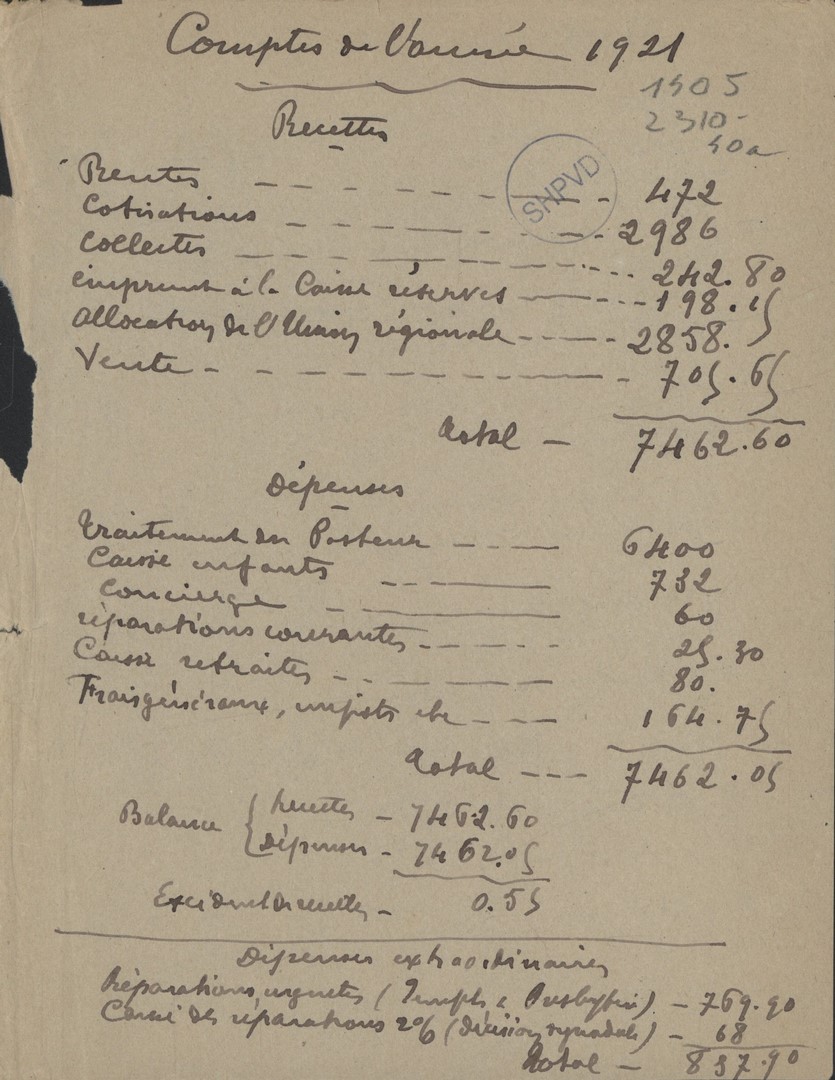 Comptes de l'année 1921
1505
2310-
40a
Recettes
SHPVD
Rentes - - - - - - 472
Cotisations - - - - - - 2986
Collectes - - - - - - 242.80
emprunt à la Caisse réserves - - - 198.15
allocation de l'Union régionale - - - 2858.
Vente - - - - - - 705.65
Total - 7462.60
Dépenses
Traitement du Pasteur - - - 6400
Caisse enfants - - - 732
Concierge - - 60
réparations courantes - - - - 25.30
Caisse retraites - - - 80.
Frais généraux, impôts etc - - - 164.75
Total - - - 7462.05
Balance { Recettes - 7462.60
Dépenses - 7462.05
Excédent de recettes - 0.55
Dépenses extraordinaires
Réparations urgentes (Temple & Presbytère) - 769.90
Caisse des réparations 2% (décision synodale) - 68
Total - 837.90